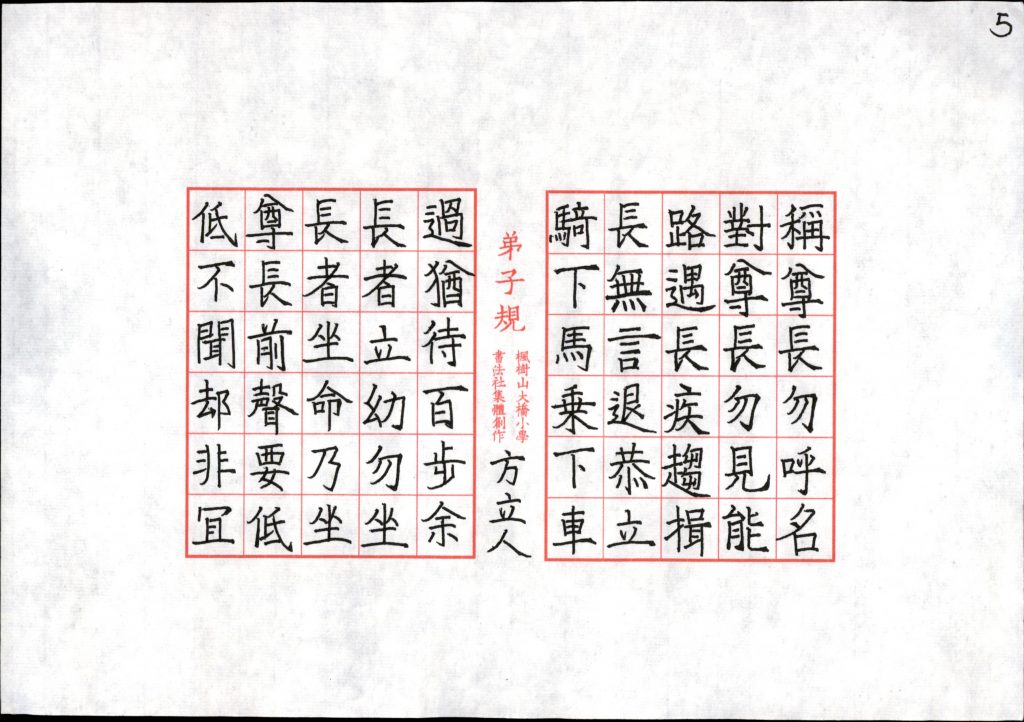 5
稱尊長勿呼名
對尊長勿見能
路遇長疾趨揖
長無言退恭立
騎下馬乘下車
弟子規
楓樹山大橋小學
書法社集體創作
方立人
過猶待百步余
長者立幼勿坐
長者坐命乃坐
尊長前聲要低
低不聞却非宜